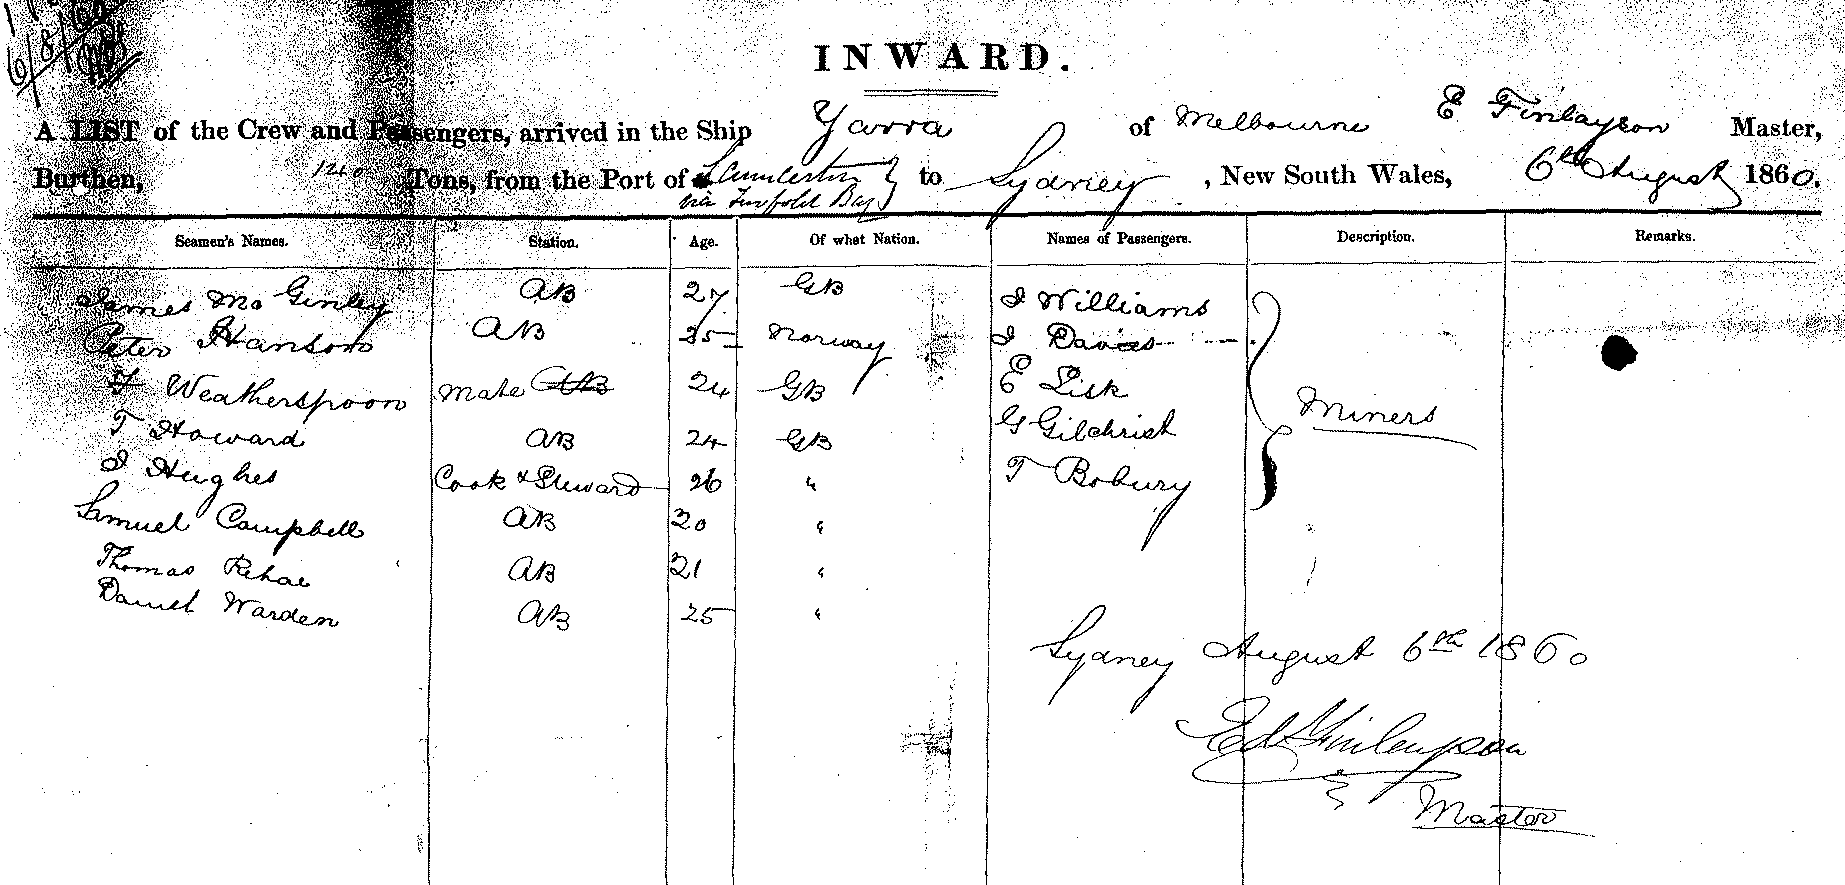 6/8/60
INWARD.
A LIST of the Crew and Passengers, arrived in the Ship Yarra of Melbourne E Finlayson Master,
Burthen, 140 Tons, from the Port of Launceston to Sydney, New South Wales, 6th August 1860.
via Twofold Bay
Seamen's Names. Station. Age. Of what Nation. Names of Passengers. Description. Remarks.
James McGinley AB 27 GB J Williams
Peter Hanson AB 25 Norway J Davies
Weatherspoon Mate AB 24 GB E Lisk Miners
T Howard AB 24 GB G Gilchrist
J Hughes Cook & Steward 26 " T Bobury
Samuel Campbell AB 20 "
Thomas AB 21 "
Daniel Warden AB 25 "
Sydney August 6th 1860
Ed Finlayson
Master